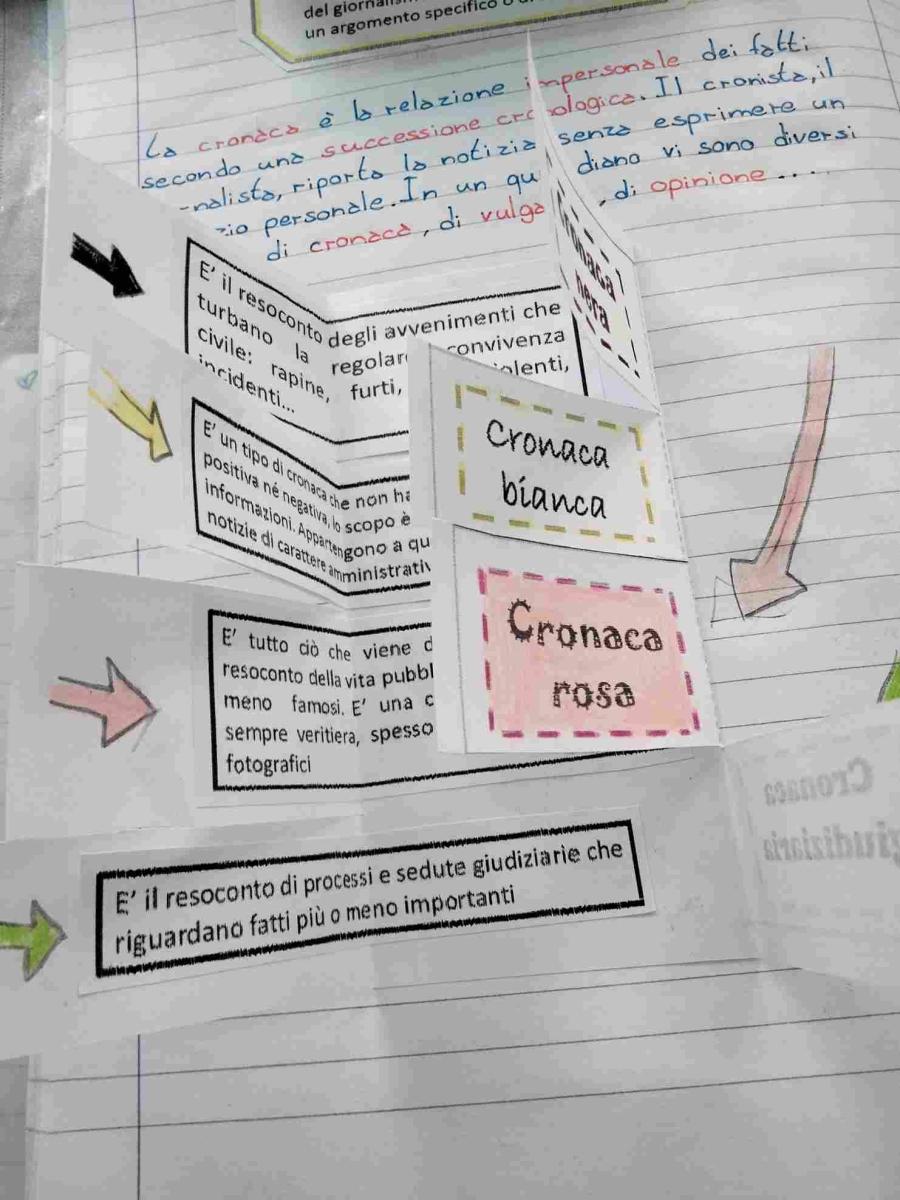 del
un argomento specifico o
La cronaca è la relazione impersonale dei fatti
secondo una successione cronologica. Il cronista, il
-nalista, riporta la notizia senza esprimere un
-zio personale. In un diano vi sono diversi
di cronaca, di , di opinione ....
E' il resoconto degli avvenimenti che
turbano la convivenza
civile: rapine, furti,
incidenti...
Cronaca
nera
E' un tipo di cronaca che non ha
positiva né negativa, lo scopo è
informazioni. Appartengono a
notizie di carattere
Cronaca
bianca
E' tutto ciò che viene
resoconto della vita
meno famosi. E' una
sempre veritiera, spesso
fotografici
Cronaca
rosa
E' il resoconto di processi e sedute giudiziarie che
riguardano fatti più o meno importanti
Cronaca
giudiziaria